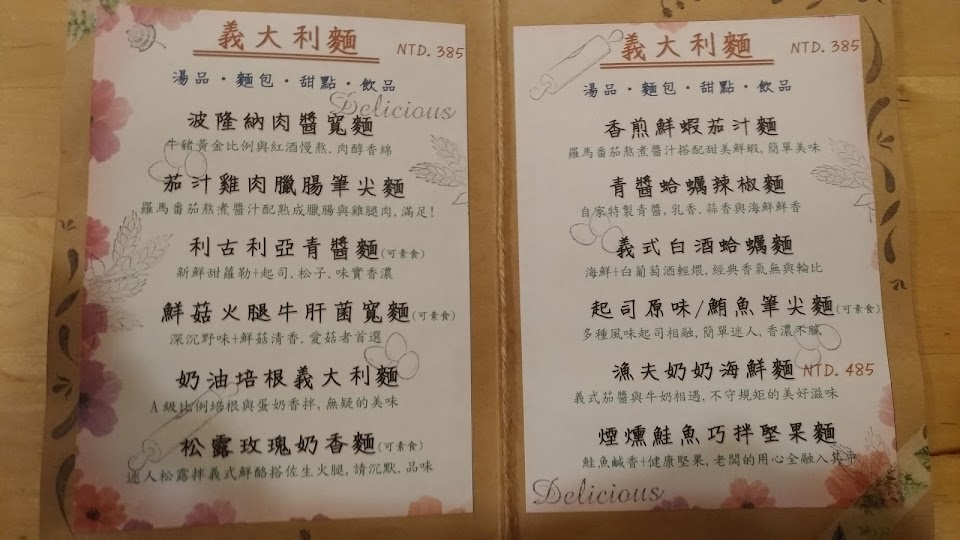 義大利麵 NTD. 385
湯品・麵包・甜點・飲品
Delicious
波隆納肉醬寬麵
牛豬黃金比例與紅酒慢熬, 肉醇香綿
茄汁雞肉臘腸筆尖麵
羅馬番茄熬煮醬汁配熟成臘腸與雞腿肉, 滿足!
利古利亞青醬麵(可素食)
新鮮甜蘿勒+起司, 松子, 味實香濃
鮮菇火腿牛肝菌寬麵(可素食)
深沉野味+鮮菇清香, 愛菇者首選
奶油培根義大利麵
A級比例培根與蛋奶香拌, 無疑的美味
松露玫瑰奶香麵(可素食)
迷人松露拌義式鮮酪搭佐生火腿, 請沉默, 品味
義大利麵 NTD. 385
湯品・麵包・甜點・飲品
香煎鮮蝦茄汁麵
羅馬番茄熬煮醬汁搭配甜美鮮蝦, 簡單美味
青醬蛤蠣辣椒麵
自家特製青醬, 乳香, 蒜香與海鮮鮮香
義式白酒蛤蠣麵
海鮮+白葡萄酒輕煨, 經典香氣無與輪比
起司原味/鮪魚筆尖麵(可素食)
多種風味起司相融, 簡單迷人, 香濃不膩
漁夫奶奶海鮮麵 NTD. 485
義式茄醬與牛奶相遇, 不守規矩的美好滋味
煙燻鮭魚巧拌堅果麵
鮭魚鹹香+健康堅果, 老闆的用心全融入其中
Delicious